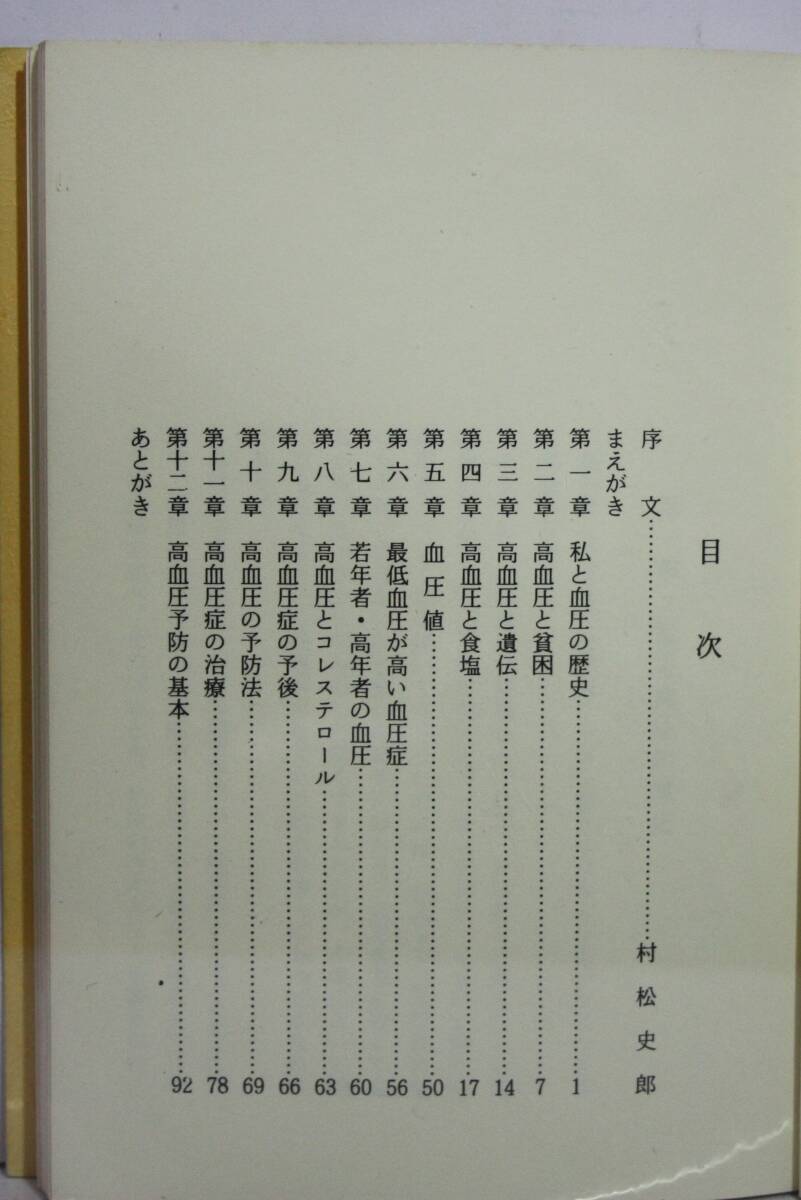 目次
序文……村松史郎
まえがき
第一章 私と血圧の歴史……1
第二章 高血圧と貧困……7
第三章 高血圧と遺伝……14
第四章 高血圧と食塩……17
第五章 血圧値……50
第六章 最低血圧が高い血圧症……56
第七章 若年者・高年者の血圧……60
第八章 高血圧とコレステロール……63
第九章 高血圧症の予後……66
第十章 高血圧の予防法……69
第十一章 高血圧症の治療……78
第十二章 高血圧予防の基本……92
あとがき